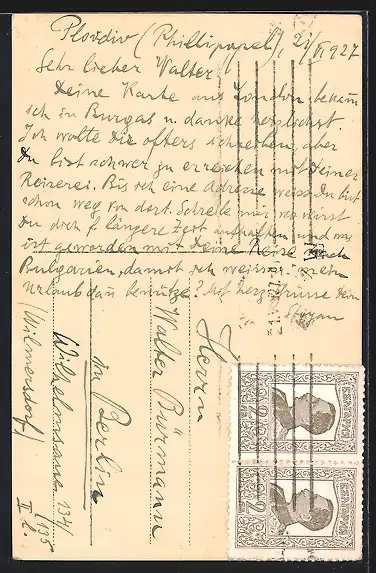 Plovdiv (Phillipopel), 21/VI. 927
Sehr lieber Walter!
Deine Karte aus London bekam
ich in Burgas u. danke herzlichst.
Ich wolte Dir ofters schreiben, aber
Du bist schwer zu erreichen mit Deiner
Reiserei. Bis ich eine Adresse weiss Du bist
schon weg von dort. Schreibe mir wo wirst
Du dich f. längere Zeit aufhalten und was
ist geworden mit Deine Reise nach
Bulgarien, damit ich weiss mein
Urlaub dan benutze? Mit herzl. Grüsse Dein
Stoyan
Herrn
Walter Bürmann
in Berlin
Wilhelmsaue 134/135
(Wilmersdorf) II l.
2
2